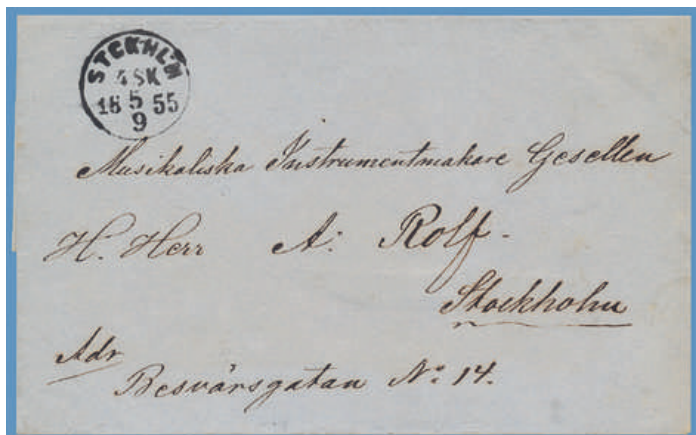 STCKHLM
4 SK
18 5 55
9
Musikaliska Instrumentmakare Gesellen
H. Herr A: Rolf.
Stockholm
Adr
Besvärsgatan No: 14.